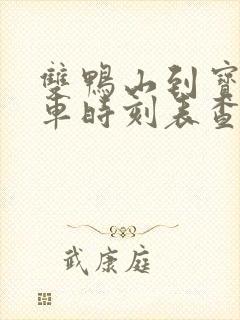 雙鴨山到寶
車時刻表查
武康庭